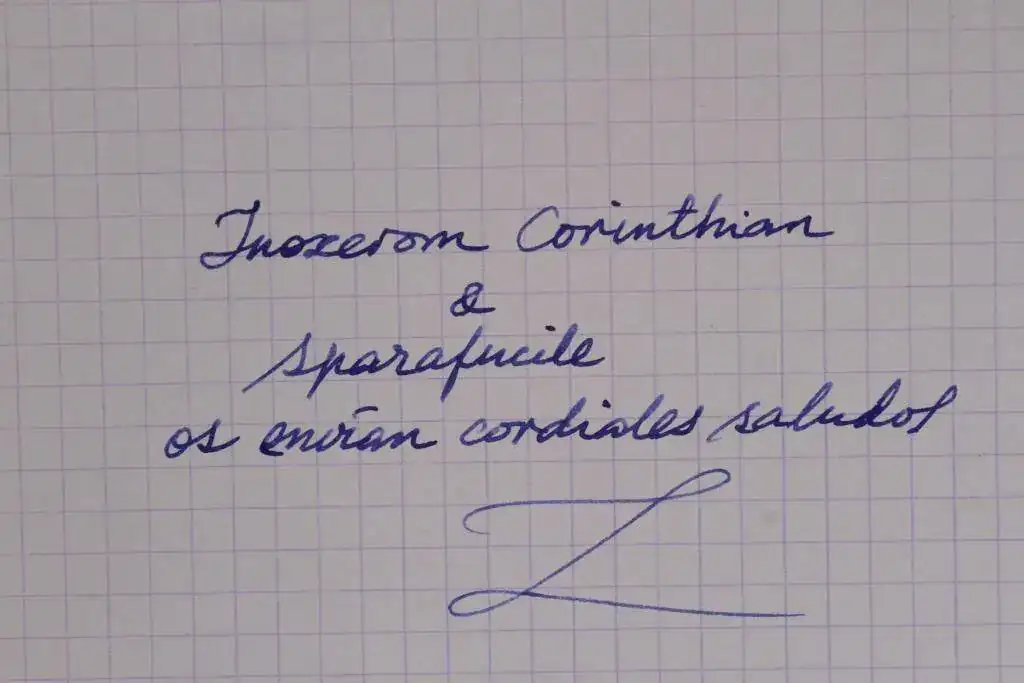 Inoxcrom Corinthian
&
Sparafucile
os envían cordiales saludos